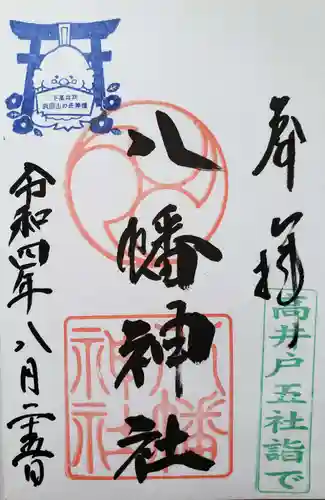 奉拝
高井戸五社詣で
八幡神社
八幡神社
令和四年八月二十五日
下高井戸